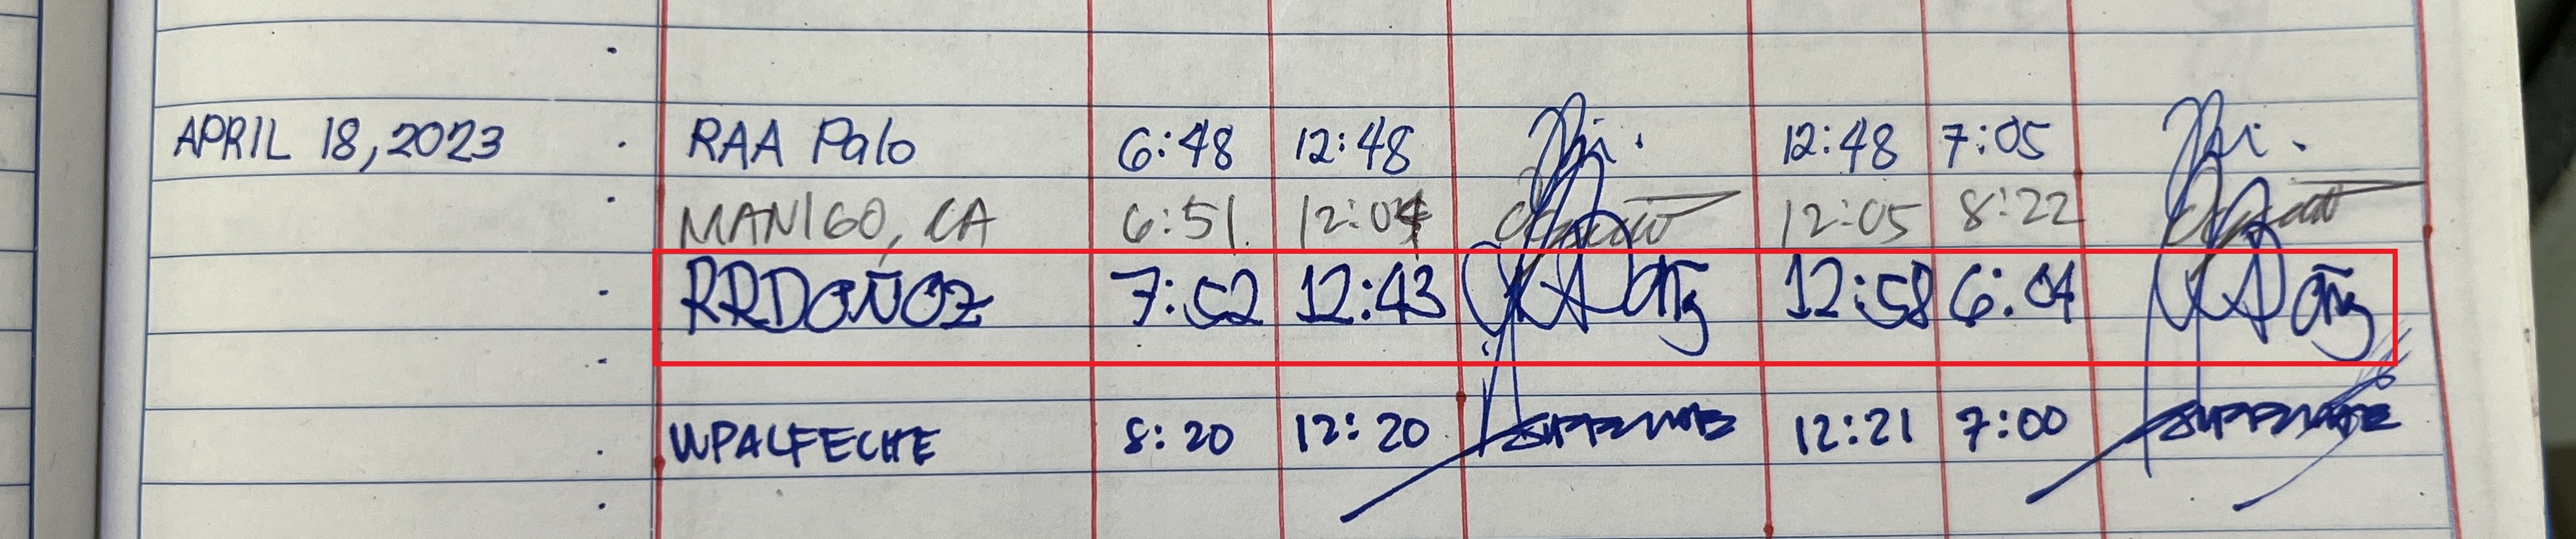 APRIL 18, 2023 RAA Palo 6:48 12:48 12:48 7:05
MANIGO, CA 6:51 12:04 12:05 8:22
RRDOÑOZ 7:52 12:43 12:58 6:04
WPALFECHE 8:20 12:20 12:21 7:00